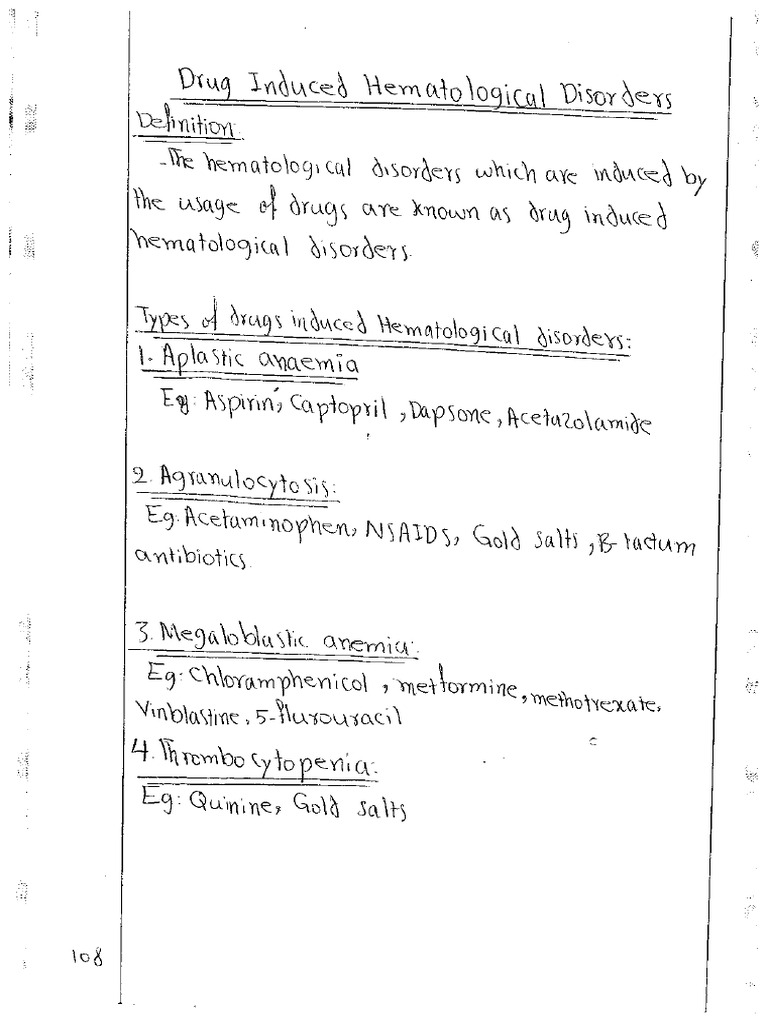 Drug Induced Hematological Disorders
Definition:
-The hematological disorders which are induced by
the usage of drugs are known as drug induced
hematological disorders.
Types of drugs induced Hematological disorders:
1. Aplastic anaemia
Eg: Aspirin, Captopril, Dapsone, Acetazolamide
2. Agranulocytosis:
Eg: Acetaminophen, NSAIDS, Gold salts, β-lactum
antibiotics.
3. Megaloblastic anemia:
Eg: Chloramphenicol, metformine, methotrexate,
Vinblastine, 5-flurouracil
4. Thrombocytopenia:
Eg: Quinine, Gold salts
108